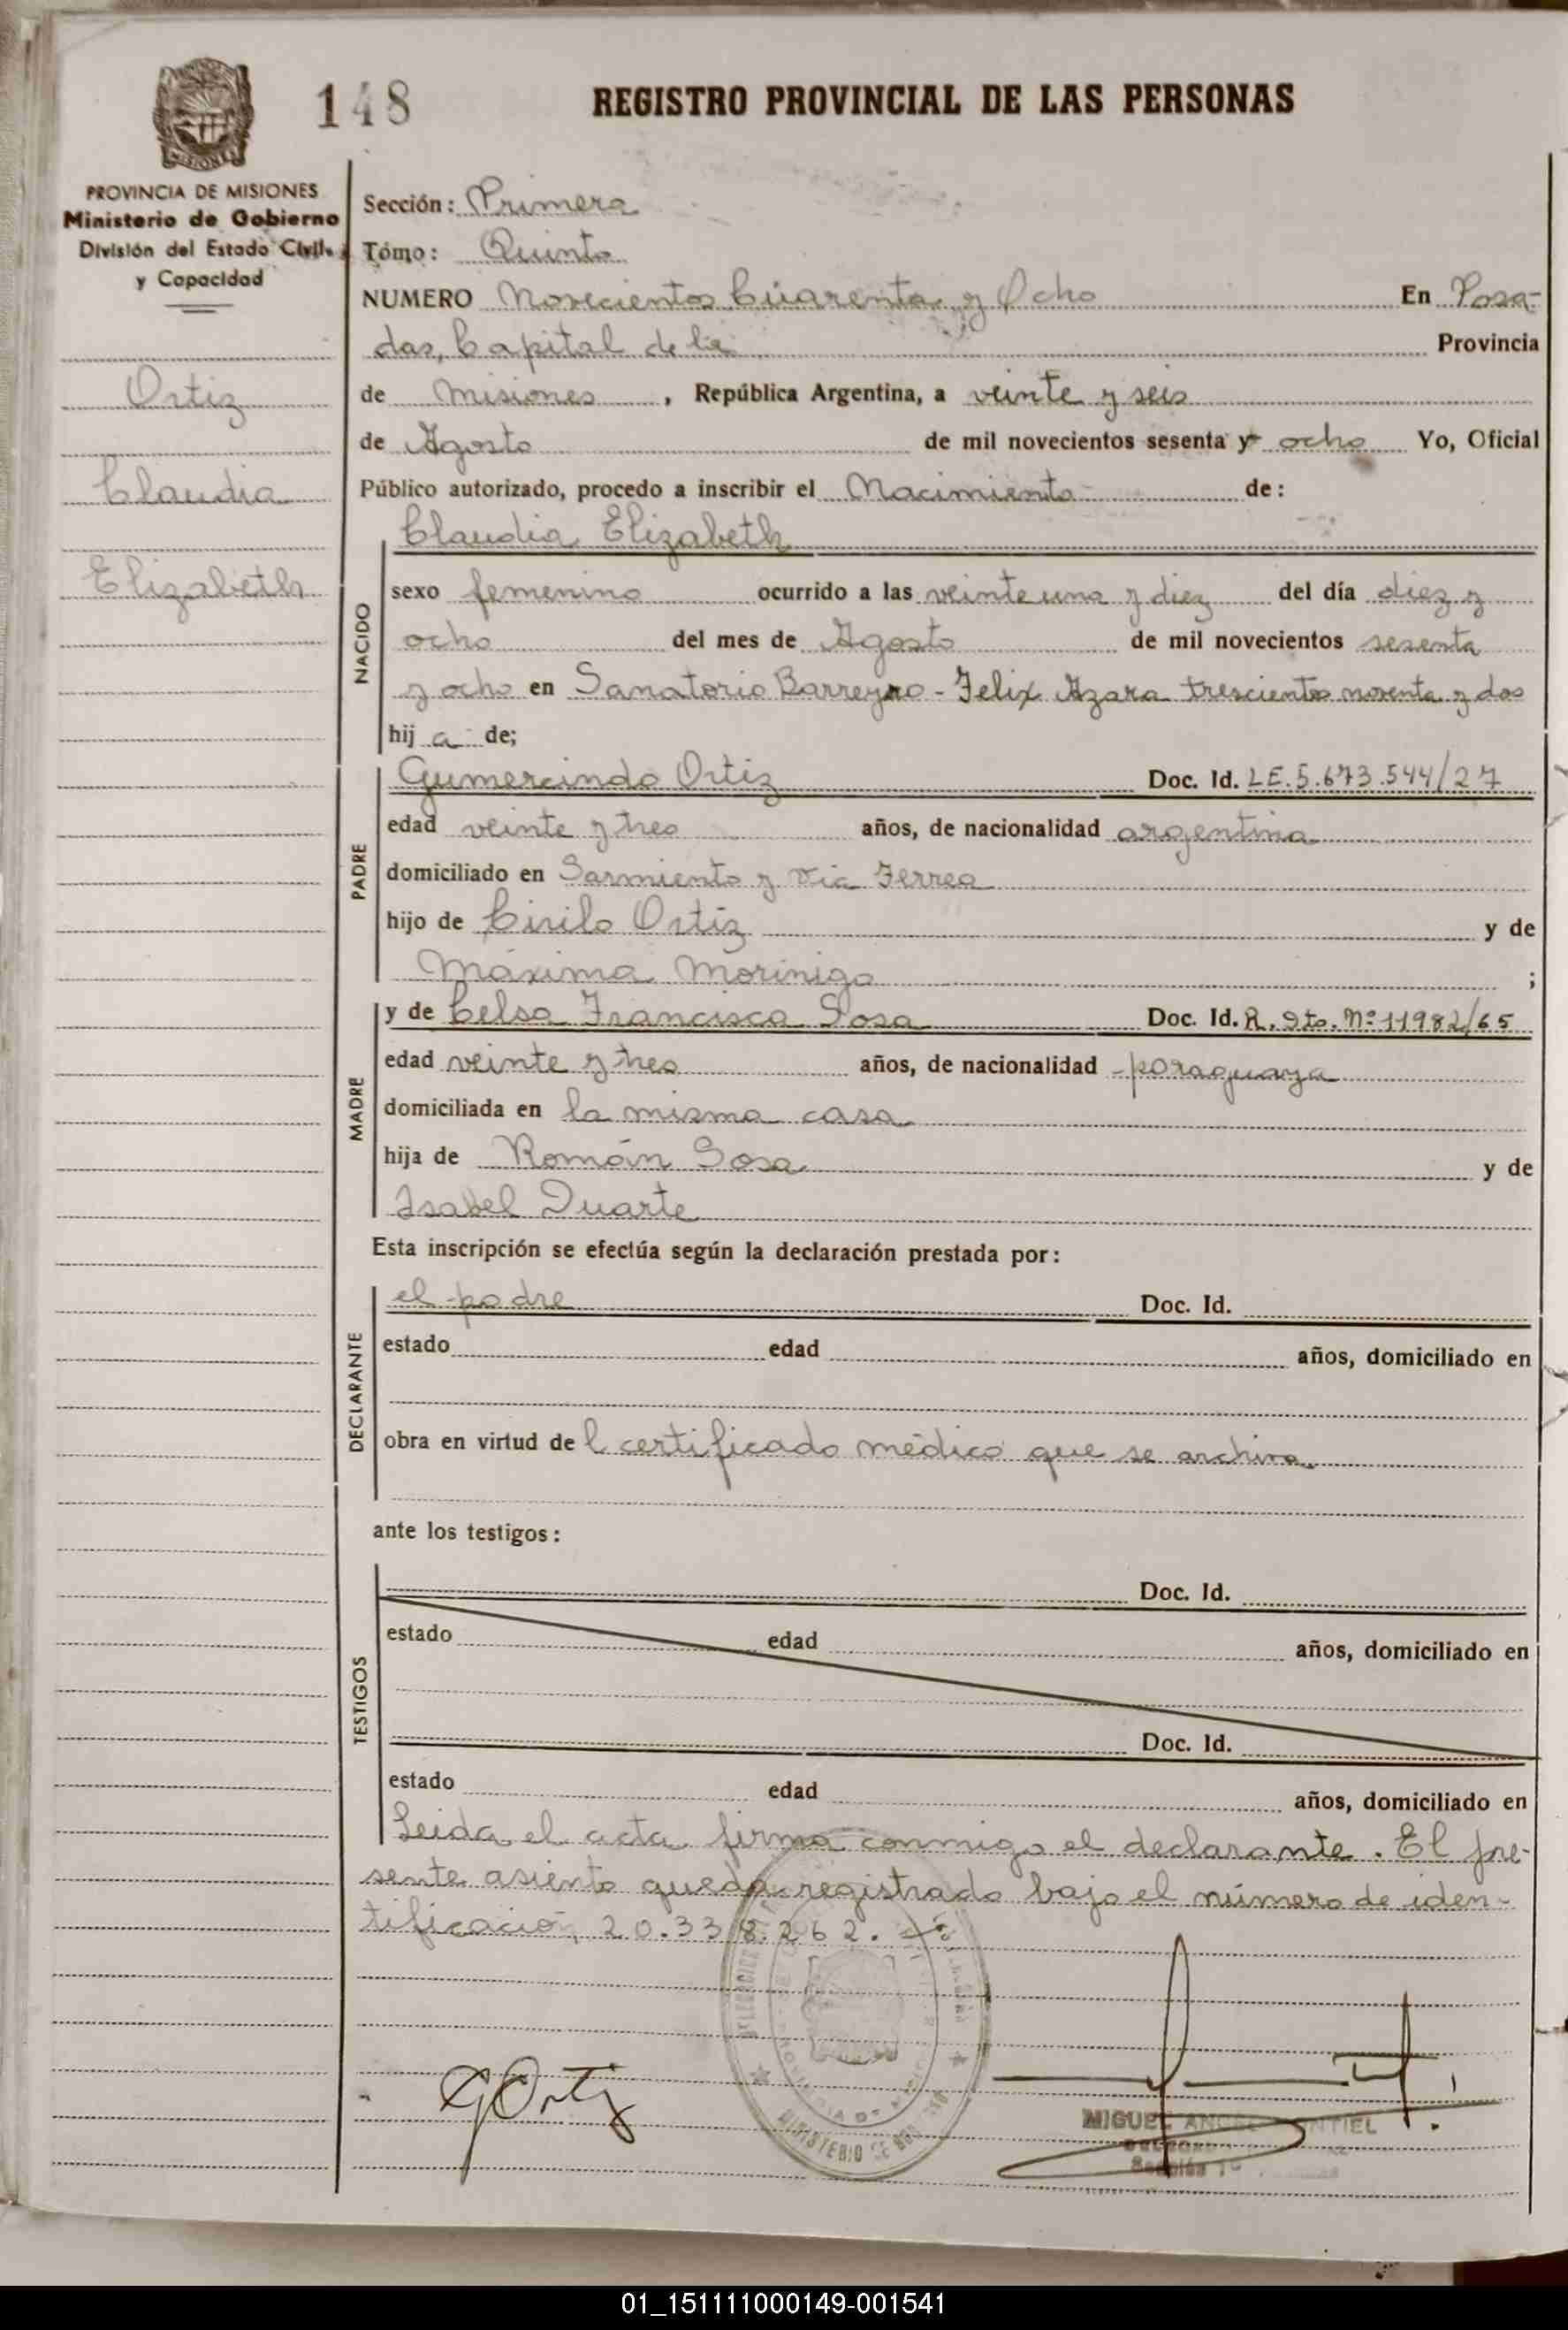 148
REGISTRO PROVINCIAL DE LAS PERSONAS
MISIONES
PROVINCIA DE MISIONES
Ministerio de Gobierno
División del Estado Civil
y Capacidad
Ortiz
Claudia
Elizabeth
Sección: Primera
Tómo: Quinto
NUMERO Novecientos Cuarenta y Ocho En Posa-
das, Capital de la Provincia
de Misiones, República Argentina, a veinte y seis
de Agosto de mil novecientos sesenta y ocho Yo, Oficial
Público autorizado, procedo a inscribir el Nacimiento de:
NACIDO
Claudia Elizabeth
sexo femenino ocurrido a las veinte una y diez del día diez y
ocho del mes de Agosto de mil novecientos sesenta
y ocho en Sanatorio Barreyro - Felix Azara trescientos noventa y dos
hija de;
PADRE
Gumercindo Ortiz Doc. Id. LE.5.673.544/27
edad veinte y tres años, de nacionalidad argentina
domiciliado en Sarmiento y Via Ferrea
hijo de Cirilo Ortiz y de
Máxima Morinigo ;
MADRE
y de Celsa Francisca Sosa Doc. Id. R. Sto. Nº 11982/65
edad veinte y tres años, de nacionalidad paraguaya
domiciliada en la misma casa
hija de Román Sosa y de
Isabel Duarte
Esta inscripción se efectúa según la declaración prestada por:
DECLARANTE
el padre Doc. Id.
estado edad años, domiciliado en
obra en virtud de l certificado médico que se archiva
ante los testigos:
TESTIGOS
Doc. Id.
estado edad años, domiciliado en
Doc. Id.
estado edad años, domiciliado en
Leida el acta firma conmigo el declarante. El pre-
sente asiento queda registrado bajo el número de iden-
tificación 20.338.262.
GOrtiz
MINISTERIO DE
MIGUEL ANGEL
Sección 1ª
01_151111000149-001541